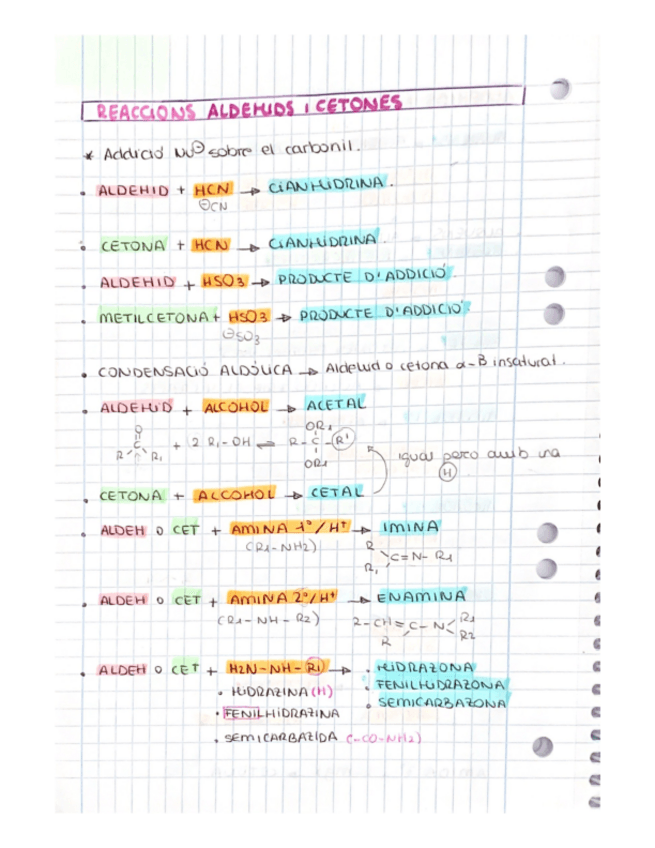 REACCIONS ALDEHIDS I CETONES
* Addició Nu⊖ sobre el carbonil.
• ALDEHID + HCN → CIANHIDRINA.
⊖CN
• CETONA + HCN → CIANHIDRINA.
• ALDEHID + HSO3 → PRODUCTE D'ADDICIÓ.
• METILCETONA + HSO3 → PRODUCTE D'ADDICIÓ.
⊖SO3
• CONDENSACIÓ ALDÒLICA → Aldehid o cetona α-B insaturat.
• ALDEHID + ALCOHOL → ACETAL
O OR1
R C R1 + 2 R1-OH ⇌ R-C-R'
OR1
igual però amb una
H
• CETONA + ALCOHOL → CETAL
• ALDEH O CET + AMINA 1º/H+ → IMINA
(R1-NH2) R R1 C=N-R1
• ALDEH O CET + AMINA 2º/H+ → ENAMINA
(R1-NH-R2) R-CH=C-N R1 R2
R
• ALDEH O CET + H2N-NH-R1 → • HIDRAZONA
• HIDRAZINA (H) • FENILHIDRAZONA
• FENILHIDRAZINA • SEMICARBAZONA
• SEMICARBAZIDA (-CO-NH2)